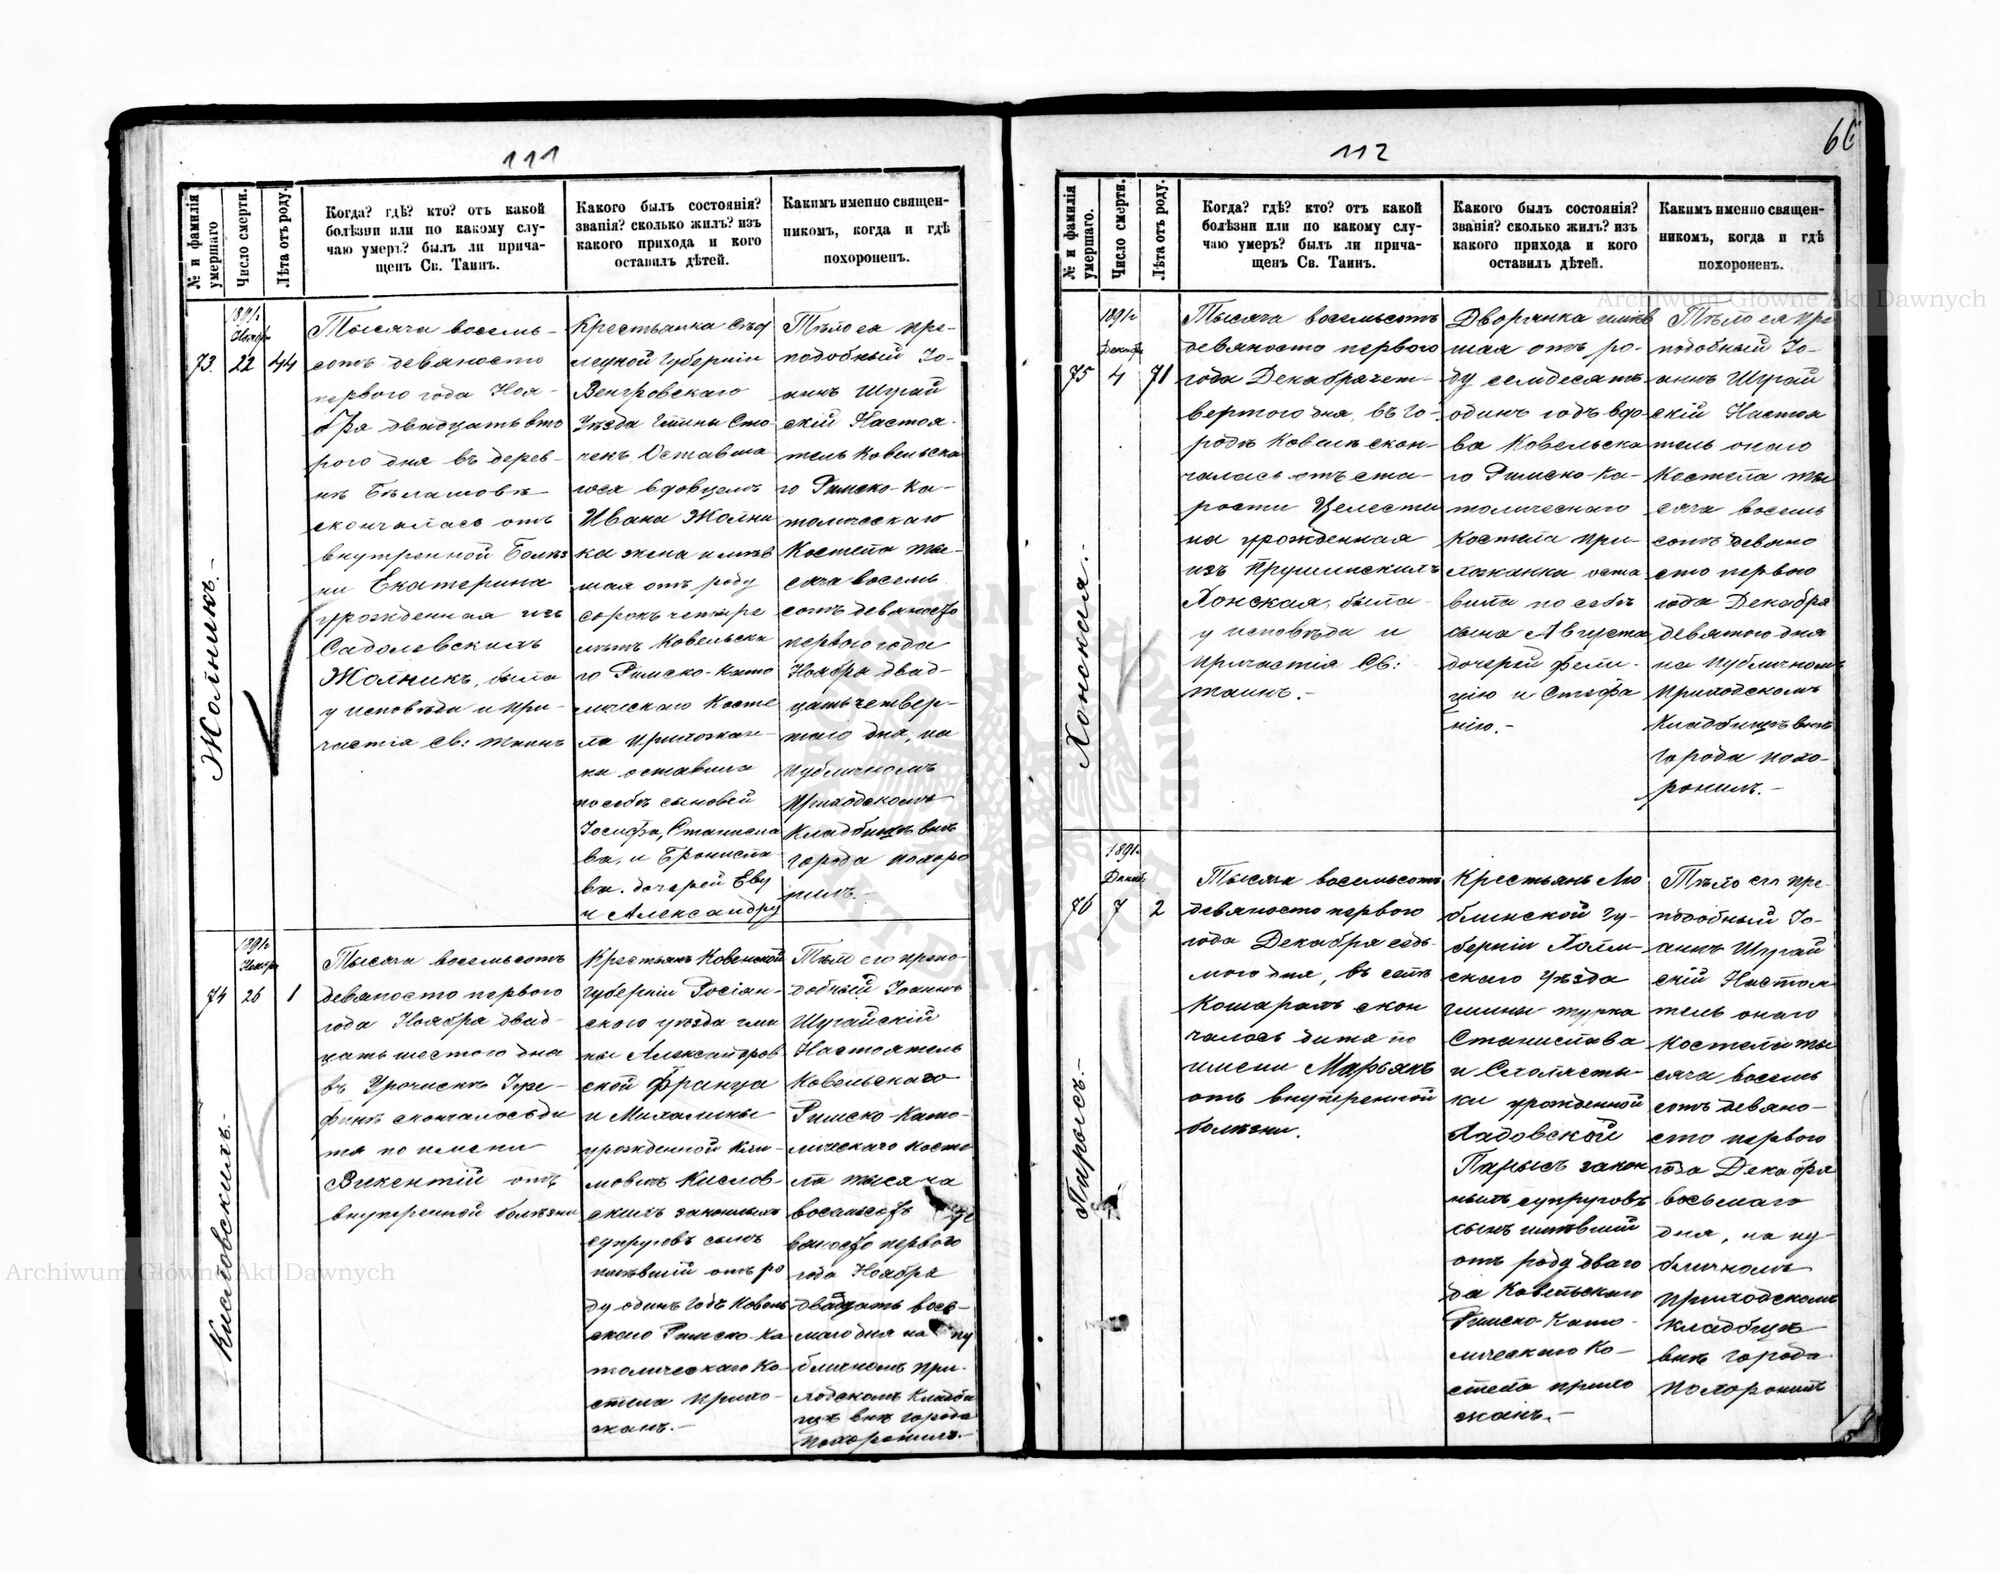 111
№ и фамилія умершаго
Число смерти.
Лѣта отъ роду.
Когда? гдѣ? кто? отъ какой
болѣзни или по какому слу-
чаю умеръ? былъ ли прича-
щенъ Св. Таинъ.
Какого былъ состоянія?
званія? сколько жилъ? изъ
какого прихода и кого
оставилъ дѣтей.
Какимъ именно священ-
никомъ, когда и гдѣ
похороненъ.
1891г
Ноября
73.
22
44
Жолникъ.-
Тысяча восемь-
сотъ девяносто
перваго года Ноя-
бря двадцать вто
рого дня въ дерев-
нѣ Бѣлашовѣ
скончалась отъ
внутренной болѣз
ни Екатерина
урожденная изъ
Садолевскихъ
Жолникъ, была
у исповѣди и при-
частія Св: Таинъ
Крестьянка Сѣд
лецкой Губерніи
Венгровскаго
Уѣзда Гмины Сто
чекъ Оставша
гося вдовцемъ
Ивана Жолни
ка жена имѣв
шая отъ роду
сорокъ четыре
лѣтъ Ковельска
го Римско-като
лическаго Косте
ла прихожан-
ка оставила
по себѣ сыновей
Іосифа, Станисла
ва, и Бронисла
ва. дочерей Еву
и Александру
Тѣло ея пре-
подобный Іо-
аннъ Шугай
скій Настоя-
тель Ковельска
го Римско-Ка-
толическаго
Костела ты-
сяча восемь
сотъ девяносто
перваго года
Ноября двад-
цать четвер-
таго дня, на
публичномъ
приходскомъ
кладбищѣ внѣ
города похоро
нилъ.-
1891г
Ноября
74
26
1
Кисловскихъ.-
Тысяча восемьсотъ
девяносто перваго
года Ноября двад-
цать шестого дня
въ Урочискѣ
скончалось ди
тя по имени
Викентій отъ
внутренной болѣзни
Крестьянъ Ковенской
Губерніи Росіан-
ского уѣзда гми
ны Александров
ской Франца
и Михалины
урожденной Кли-
мовичъ Кислов-
скихъ законныхъ
супруговъ сынъ
имѣвшій отъ ро
ду одинъ годъ Ковель
скаго Римско-Ка
толическаго Ко-
стела прихо-
жанъ.-
Тѣло его препо-
добный Іоаннъ
Шугайскій
Настоятель
Ковельскаго
Римско-Като-
лическаго косте
ла тысяча
восемьсотъ де
вяносто перваго
года Ноября
двадцать вось-
маго дня на пу
бличномъ при-
ходскомъ кладби
щѣ внѣ города
похоронилъ.-
112
66
№ и фамилія умершаго.
Число смерти.
Лѣта отъ роду.
Когда? гдѣ? кто? отъ какой
болѣзни или по какому слу-
чаю умеръ? былъ ли прича-
щенъ Св. Таинъ.
Какого былъ состоянія?
званія? сколько жилъ? изъ
какого прихода и кого
оставилъ дѣтей.
Какимъ именно священ-
никомъ, когда и гдѣ
похороненъ.
1891г
Декабря
75
4
71
Хонская.-
Тысяча восемьсотъ
девяносто перваго
года Декабря чет-
вертого дня, въ го-
родѣ Ковелѣ скон-
чалась отъ ста-
рости Целести
на урожденная
изъ Прушинскихъ
Хонская, была
у исповѣди и
причастія Св:
таинъ.-
Дворянка имѣв
шая отъ ро-
ду семдесятъ
одинъ годъ вдо-
ва Ковельска
го Римско-Ка-
толическаго
Костела при-
хожанка оста
вила по себѣ
сына Августа
дочерей Фели-
цію и Стефа
нію.-
Тѣло ея пре
подобный Іо-
аннъ Шугай
скій Настоя
тель онаго
Костела ты
сяча восемь
сотъ девяно
сто перваго
года Декабря
девятого дня
на публичномъ
приходскомъ
кладбищѣ внѣ
города похо-
ронилъ.-
1891г
Декаб
76
7
2
Парысъ.-
Тысяча восемьсотъ
девяносто перваго
года Декабря седь-
мого дня, въ селѣ
Кошарахъ скон
чалось дитя по
имени Марьянъ
отъ внутренной
болѣзни.
Крестьянъ Лю
блинской гу-
берніи Холм-
скаго Уѣзда
гмины Турка
Станислава
и Схоласты-
ки урожденной
Ладовской
Парысъ закон
ныхъ супруговъ
сынъ имѣвшій
отъ роду два го
да Ковельскаго
Римско-Като-
лическаго Ко-
стела прихо
жанъ.-
Тѣло его пре-
подобный Іо-
аннъ Шугай
скій Настоя
тель онаго
костела ты
сяча восемь
сотъ девяно-
сто перваго
года Декабря
восьмаго
дня, на пу-
бличномъ
приходскомъ
кладбищѣ
внѣ города
похоронилъ
Archiwum Główne Akt Dawnych
Archiwum Główne Akt Dawnych